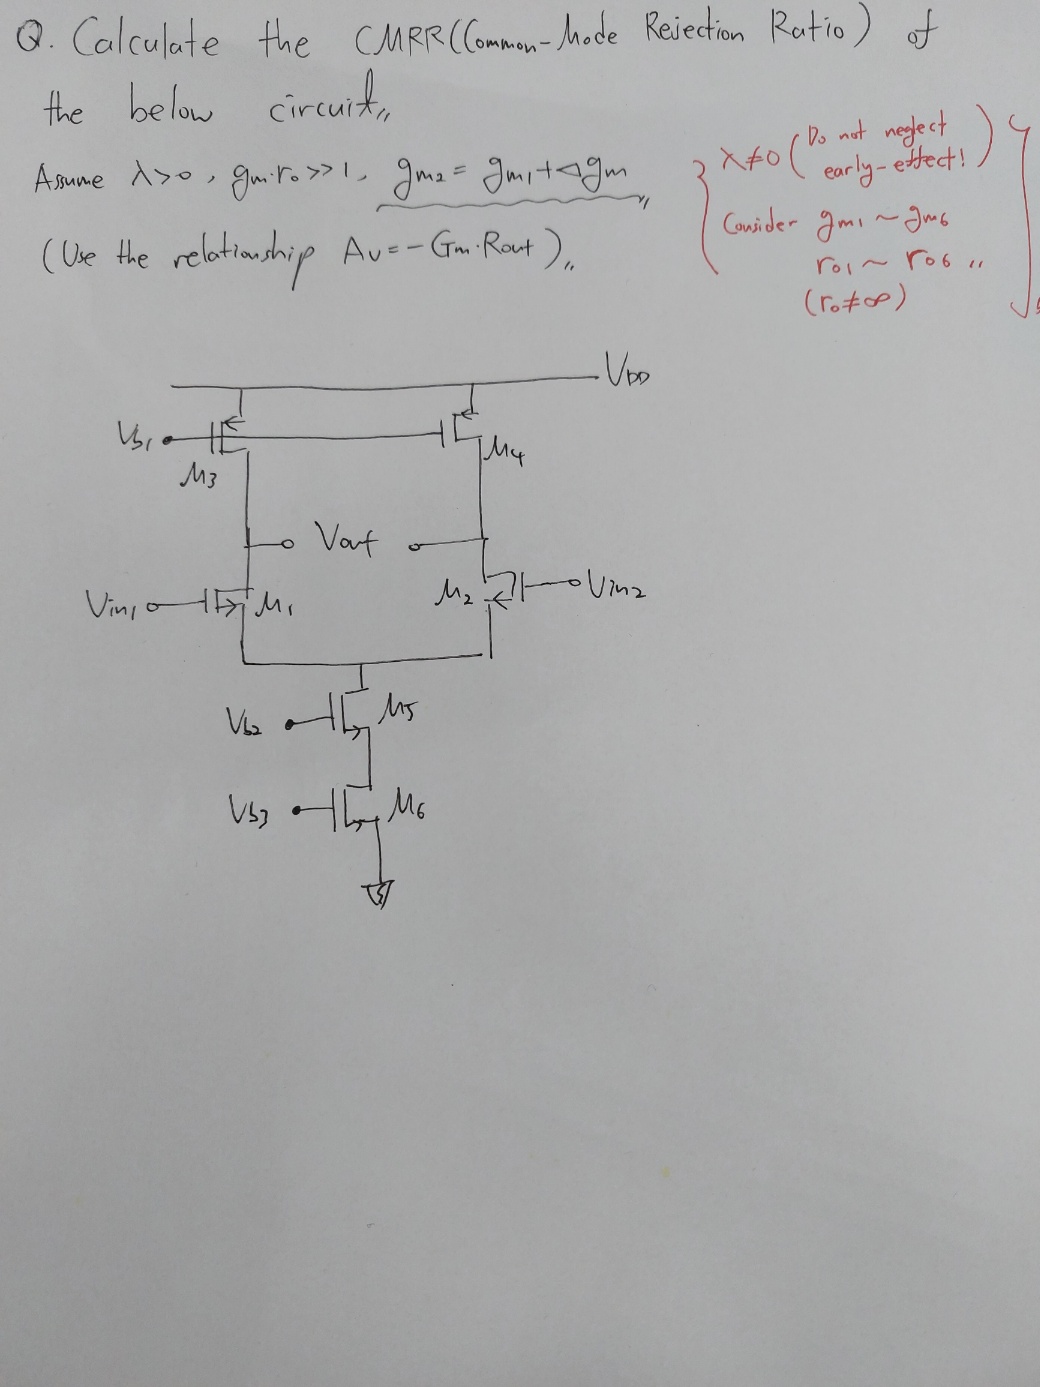 Q. Calculate the CMRR(Common-Mode Rejection Ratio) of
the below circuit,,
Assume λ>0, gm·ro>>1, gm2 = gm1+Δgm,,
(Use the relationship Av=-Gm·Rout),,
λ≠0 (Do not neglect
early-effect!)
Consider gm1 ~ gm6
ro1 ~ ro6 ,,
(ro≠∞)
VDD
Vb1
M3
M4
Vout
Vin1
M1
M2
Vin2
Vb2
M5
Vb3
M6